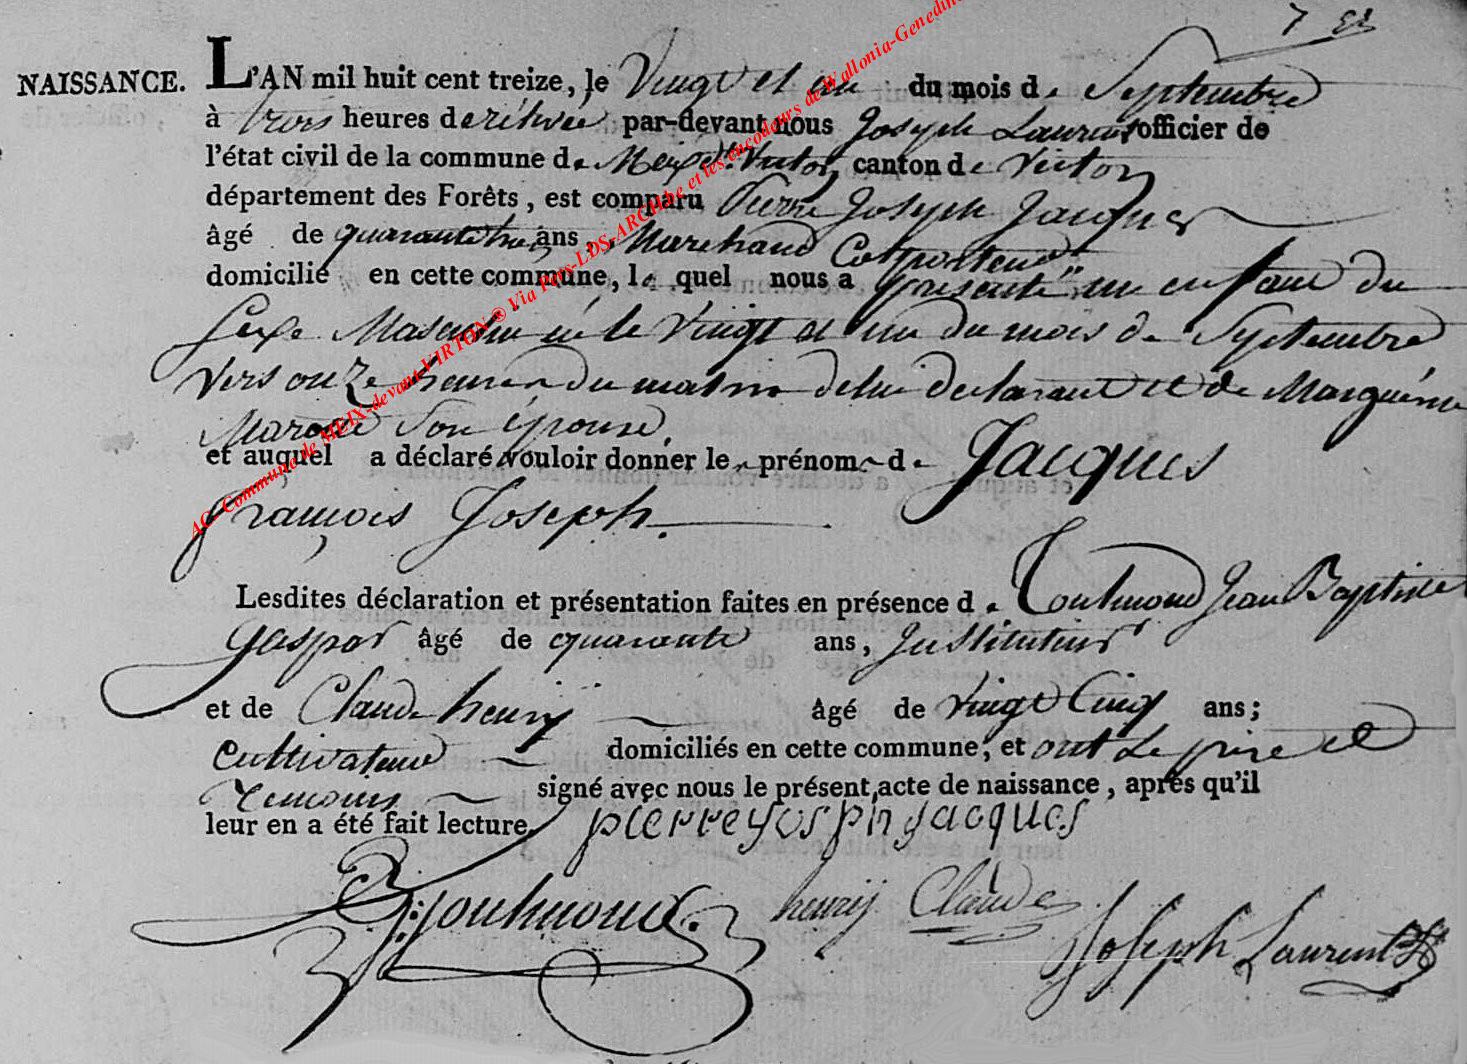 NAISSANCE. L'AN mil huit cent treize, le Vingt et un du mois de Septembre
à trois heures de rélevée par-devant nous Joseph Laurent officier de
l'état civil de la commune de Meix dt. Virton canton de Virton
département des Forêts, est comparu Pierre Joseph Jacques
âgé de quarante trois ans, Marchand Colporteur
domicilié en cette commune, lequel nous a présenté un enfant du
sexe Masculin né le Vingt et un du mois de Septembre
vers onze heures du matin de lui declarant et de Marguérite
son épouse,
et auquel a déclaré vouloir donner le prénom de Jacques
françois Joseph.
Lesdites déclaration et présentation faites en présence de Jean Baptiste
gaspar âgé de quarante ans, Instituteur
et de Claude henry âgé de Vingt Cinq ans;
cultivateur domiciliés en cette commune, et ont le pire et
Temoins signé avec nous le présent acte de naissance, après qu'il
leur en a été fait lecture. pierre Josph Jacques
henrij Claude
Joseph Laurent
AC Commune de MEIX-devant-VIRTON ® Via Pays-LDS-ARCHbe et les encodeurs de Wallonia-Genedin